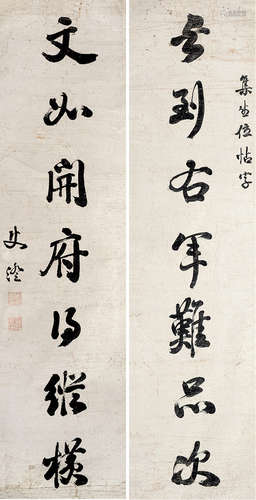 集坐位帖字
書到右軍難品次
文如開府得縱橫
史澄